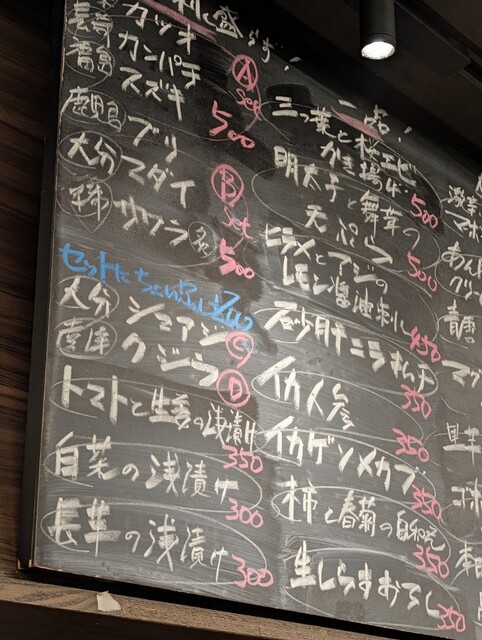 刺し盛らず!
カツオ
カンパチ
スズキ
Ⓐ
set
500
鹿児島 ブリ
大分 マダイ
サワラ
Ⓑ
set
500
セットにちょいふんぱつ
大分 シマアジ Ⓒ
クジラ Ⓓ
トマトと生姜の浅漬け
350
白菜の浅漬け
300
長芋の浅漬け
300
一品!
三つ葉と桜エビ
かき揚げ
500
明太子と舞茸の
天ぷら
500
ヒラメとアジの
レモン醤油刺し
450
砂肝ニラキムチ
350
イカ人参
350
イカゲソメカブ
350
柿と春菊の白和え
350
生しらすおろし
350
激辛
マオ
あん
クリー
青唐
マグ